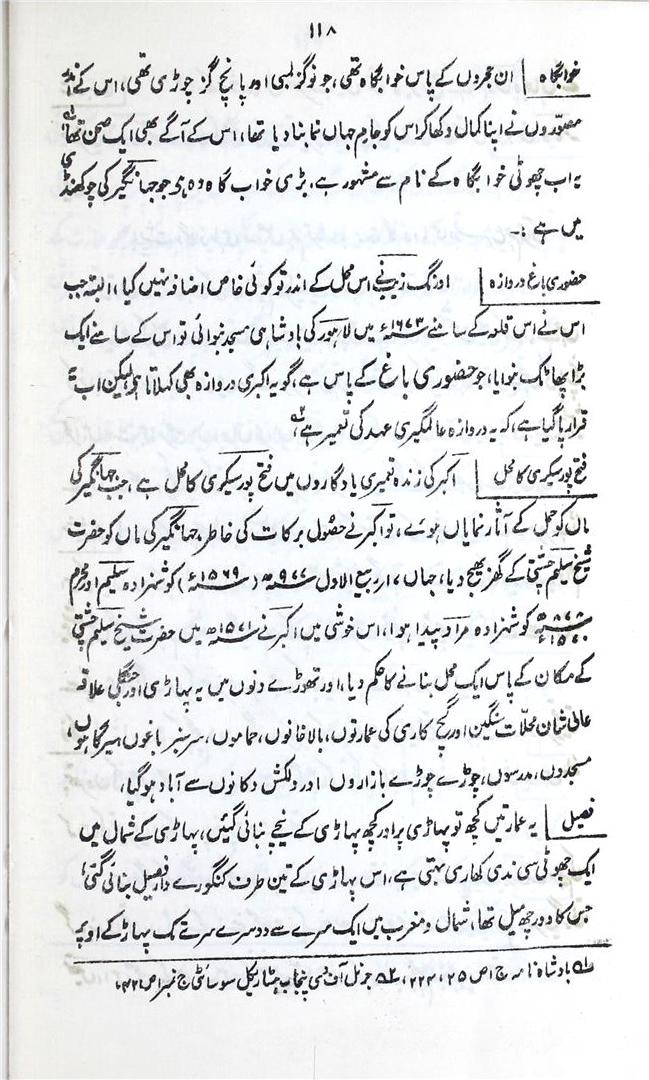 ۱۱۸
خوابگاہ ان حجروں کے پاس خوابگاہ تھی، جو نو گز لمبی اور پانچ گز چوڑی تھی، اس کے اندر
مصوّروں نے اپنا کمال دکھا کر اس کو جام جہاں نما بنا دیا تھا، اس کے آگے بھی ایک صحن تھا،
یہ اب چھوٹی خوابگاہ کے نام سے مشہور ہے، بڑی خواب گاہ وہ ہے جو جہانگیر کی چوکھنڈی
میں ہے :۔
حضوری باغ دروازہ اورنگ زیب نے اس محل کے اندر تو کوئی خاص اضافہ نہیں کیا، البتہ جب
اس نے اس قلعہ کے سامنے ۱۶۷۳ء میں لاہور کی بادشاہی مسجد بنوائی تو اس کے سامنے ایک
بڑا پھاٹک بنوایا، جو حضوری باغ کے پاس ہے، گو یہ اکبری دروازہ بھی کہلاتا ہے، لیکن اب یہ
قرار پا گیا ہے، کہ یہ دروازہ عالمگیری عہد کی تعمیر ہے،
فتح پور سیکری کا محل اکبر کی زندہ تعمیری یادگاروں میں فتح پور سیکری کا محل ہے، جب جہانگیر کی
ماں کو حمل کے آثار نمایاں ہوئے، تو اکبر نے حصول برکات کی خاطر جہانگیر کی ماں کو حضرت
شیخ سلیم چشتی کے گھر بھیج دیا، جہاں ۱۷ ربیع الاول ۹۷۷ھ (۱۵۶۹ء) کو شہزادہ سلیم اور محرم
۸۷۸ھ ۱۵۷۰ء کو شہزادہ مراد پیدا ہوا، اس خوشی میں اکبر نے ۱۵۷۱ھ میں حضرت شیخ سلیم چشتی
کے مکان کے پاس ایک محل بنانے کا حکم دیا، اور تھوڑے دنوں میں یہ پہاڑی اور جنگلی علاقہ
عالی شان محلّات سنگین اور گچ کاری کی عمارتوں، بالاخانوں، حماموں، سرسبز باغوں، سیرگاہوں،
مسجدوں، مدرسوں، چوڑے چوڑے بازاروں اور دلکش دکانوں سے آباد ہوگیا،
فصیل یہ عمارتیں کچھ تو پہاڑی پر اور کچھ پہاڑی کے نیچے بنائی گئیں، پہاڑی کے شمال میں
ایک چھوٹی سی ندی کھاری بہتی ہے، اس پہاڑی کے تین طرف کنگورے دار فصیل بنائی گئی،
جس کا دور چھ میل تھا، شمال و مغرب میں ایک سرے سے دوسرے سرے تک پہاڑ کے اوپر
۱؎ بادشاہ نامہ ج ۱ ص ۲۵، ۲۲۴، ۲؎ جرنل آف دی پنجاب ہسٹاریکل سوسائٹی ج نمبر ا ص